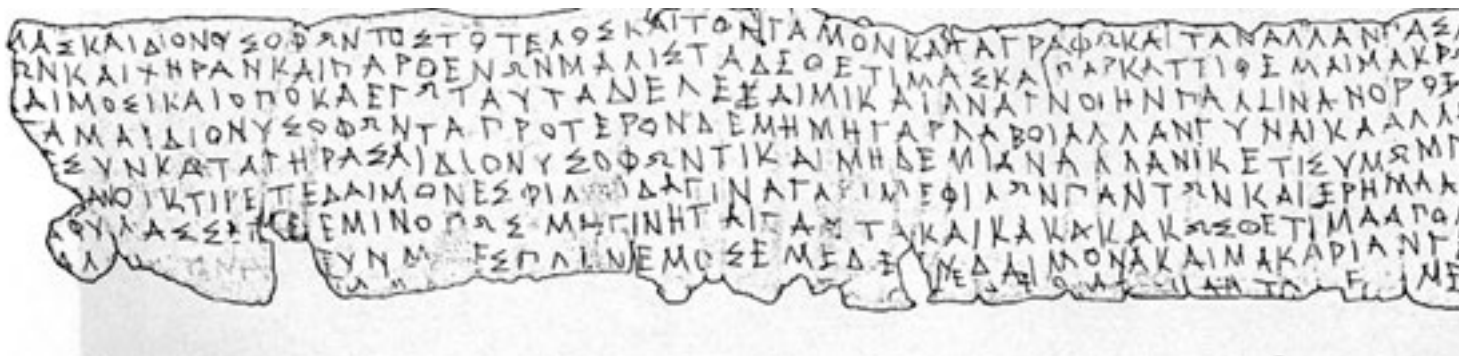 ΜΑΣΚΑΙΔΙΟΝΥΣΟΦΩΝΤΟΣΤΟΤΕΛΟΣΚΑΙΤΟΝΓΑΜΟΝΚΑΤΑΓΡΑΦΩΚΑΙΤΑΝΑΛΛΑΝΠΑΣ
ΩΝΚΑΙΧΗΡΑΝΚΑΙΠΑΡΘΕΝΩΝΜΑΛΙΣΤΑΔΕΘΕΤΙΜΑΣΚΑΙΠΑΡΚΑΤΤΙΘΕΜΑΙΜΑΚΡΩ
ΑΙΜΟΣΙΚΑΙΟΠΟΚΑΕΓΩΤΑΥΤΑΔΙΕΛΕΞΑΙΜΙΚΑΙΑΝΑΓΝΟΙΗΝΠΑΛΙΝΑΝΟΡΟΞ
ΓΑΜΑΙΔΙΟΝΥΣΟΦΩΝΤΑΠΡΟΤΕΡΟΝΔΕΜΗΜΗΓΑΡΛΑΒΟΙΑΛΛΑΝΓΥΝΑΙΚΑΑΛΛ
ΕΣΥΝΚΑΤΑΓΗΡΑΣΑΙΔΙΟΝΥΣΟΦΩΝΤΙΚΑΙΜΗΔΕΜΙΑΝΑΛΛΑΝΙΚΕΤΙΣΥΜΩΜΓ
ΑΝΟΙΚΤΙΡΕΤΕΔΑΙΜΟΝΕΣΦΙΛ ΔΑΓΙΝΑΓΑΡΙΜΕΦΙΛΩΝΠΑΝΤΩΝΚΑΙΕΡΗΜΑΑ
ΦΥΛΑΣΣΕΤΕ ΕΜΙΝΟΠΩΣΜΗΓΙΝΗΤΑΙΤΑΥΤΑΚΑΙΚΑΚΑΚΑΚΩΣΘΕΤΙΜΑΑΠΟΛ
ΕΥΝΜ ΕΣΠΛΗΝΕΜΟΣΕΜΕΔΕ ΔΑΙΜΟΝΑΚΑΙΜΑΚΑΡΙΑΝΓ